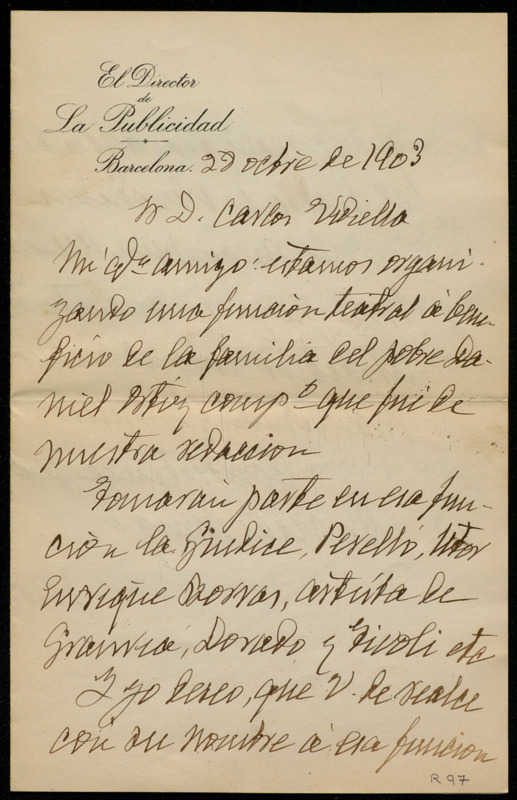 El Director
de
La Publicidad
Barcelona. 20 octbre de 1903
Sr D. Carlos Vidiella
Mi qdo amigo: estamos organi-
zando una función teatral á bene-
ficio de la familia del pobre Da-
niel Ortiz compo que fué de
nuestra redaccion
Tomarán parte en esa fun-
ción la Giudice, Perelló,
Enrique Borras, artista de
Granvia, Dorado y Tivoli etc
Y yo deseo, que V. de realce
con su nombre á esa funcion
R 97